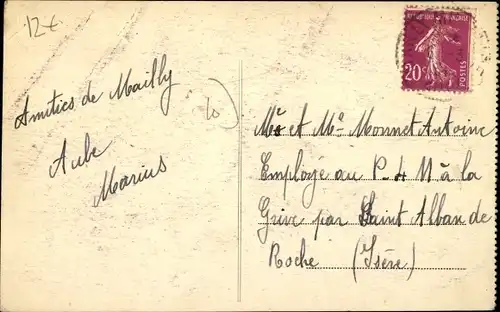 12€
Amitiés de Mailly
Aube
Marius
RÉPUBLIQUE FRANÇAISE
20c
POSTES
Mr et Me Monnet Antoine
Employé au P-L-M à la
Grive par Saint Alban de
Roche (Isère)